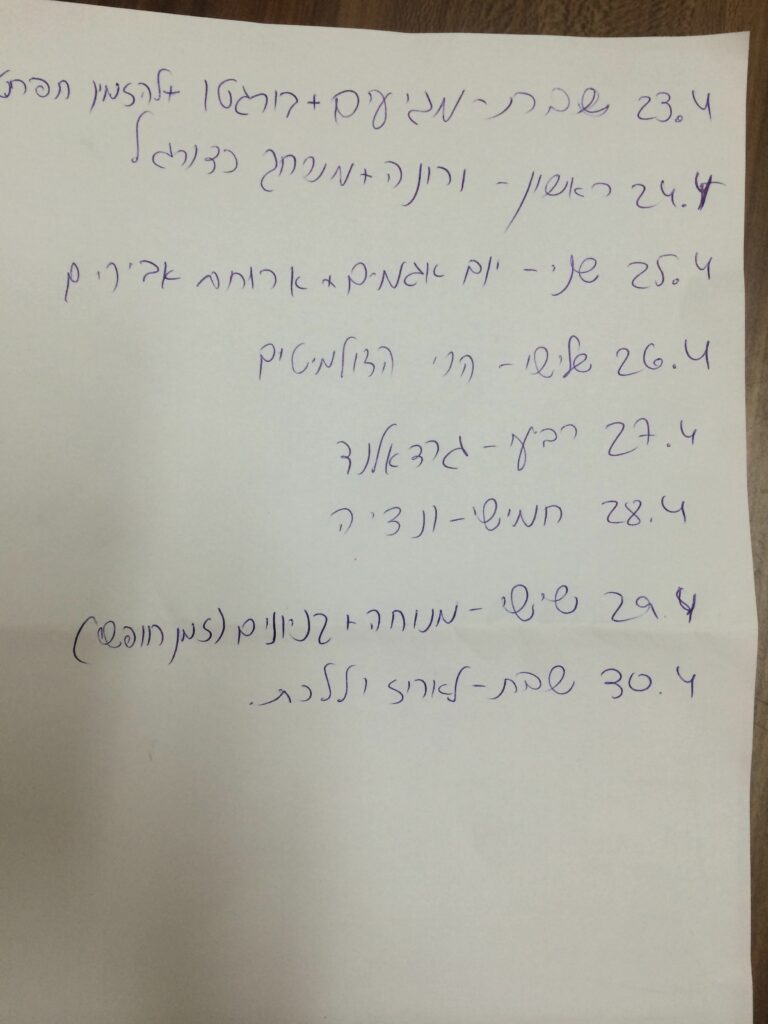 23.4 שבת - מגיעים + בורגטו + להזמין
24.4 ראשון - ורונה + משחק כדורגל
25.4 שני - יום אגמים + ארוחת אבירים
26.4 שלישי - הרי הדולמיטים
27.4 רביעי - גרדאלנד
28.4 חמישי - ונציה
29.4 שישי - מנוחה + קניונים (זמן חופשי)
30.4 שבת - לארוז וללכת.